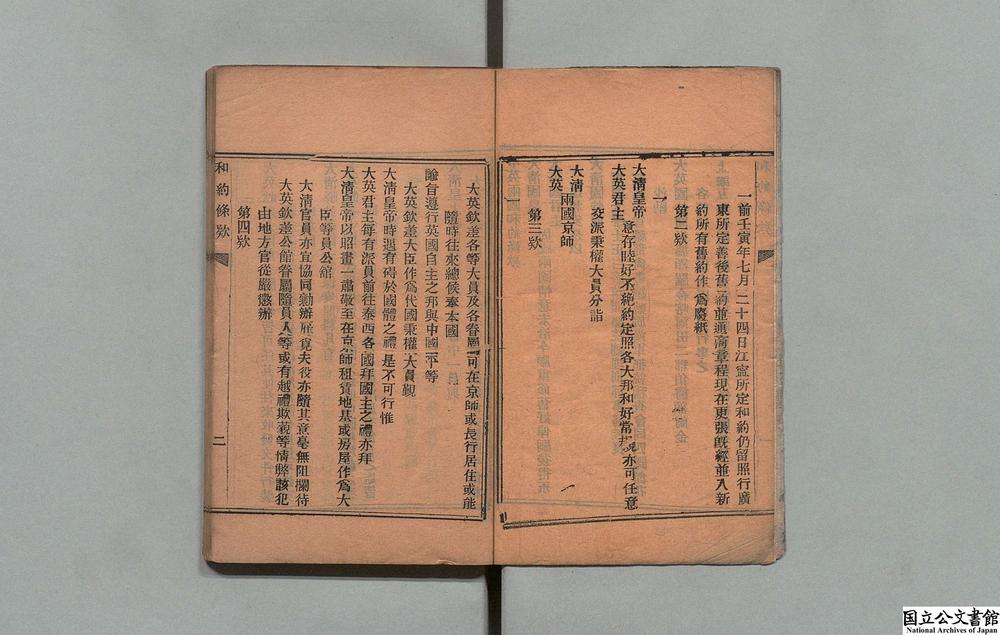 一前壬寅年七月二十四日江寧所定和約仍留照行廣
東所定善後舊約並通商章程現在更張旣經並入新
約所有舊約作爲廢紙
第二欵
一
大淸皇帝
大英君主
意存睦好不絶約定照各大邦和好常規亦可任意
交派秉權大員分詣
大淸
大英
兩國京師
第三欵
一
大英欽差各等大員及各眷屬可在京師或長行居住或能
隨時往來總候奉本國
諭旨遵行英國自主之邦與中國平等
大英欽差大臣作爲代國秉權大員覲
大淸皇帝時遇有碍於國體之禮是不可行惟
大英君主每有派員前往泰西各國拜國主之禮亦拜
大淸皇帝以昭畫一肅敬至在京師租賃地基或房屋作爲大
臣等員公舘
大淸官員亦宜協同勷辦雇覓夫役亦隨其意毫無阻攔待
大英欽差公舘眷屬隨員人等或有越禮欺藐等情弊該犯
由地方官從嚴懲辦
第四欵
和約條欵
二
国立公文書館
National Archives of Japan